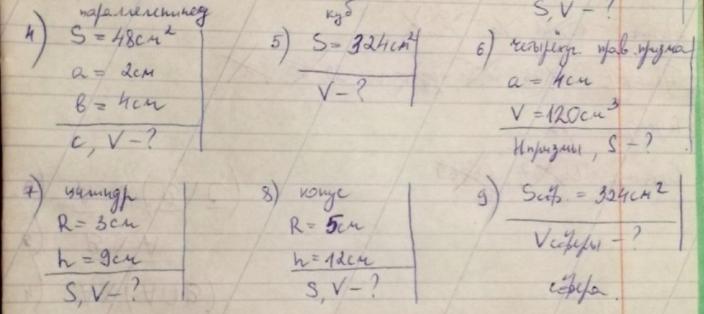 S, V - ?
4) параллелепипед
S = 48см²
a = 2см
b = 4см
c, V - ?
5) куб
S = 324см²
V - ?
6) четырёхуг. прав. призма
a = 4см
V = 120см³
Hпризмы, S - ?
7) цилиндр
R = 3см
h = 9см
S, V - ?
8) конус
R = 5см
h = 12см
S, V - ?
9) Sсф. = 324см²
Vсферы - ?
сфера.